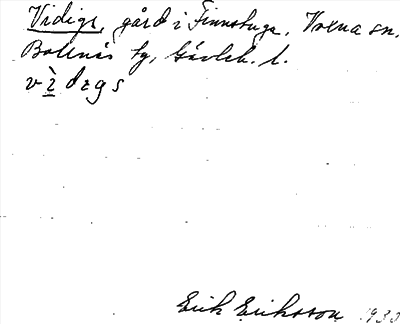 Vidigs, gård i Finnstuga, Vrena sn.
Bollnäs tg, Gävleb. l.
vìdegs
Erik Eriksson 1930